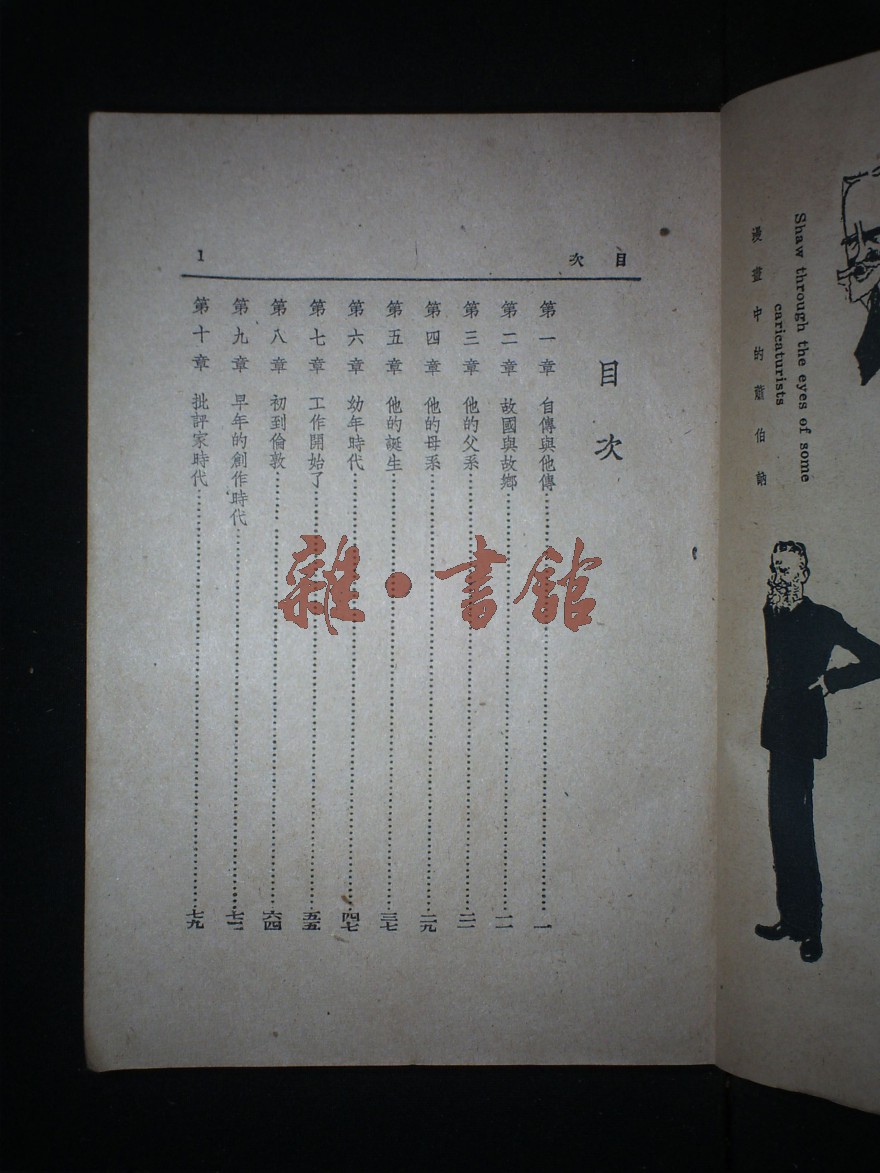 Shaw through the eyes of some
caricaturists
漫畫中的蕭伯訥
目次
1
目次
第一章 自傳與他傳……一
第二章 故國與故鄉……一一
第三章 他的父系……二一
第四章 他的母系……二九
第五章 他的誕生……三七
第六章 幼年時代……四七
第七章 工作開始了……五五
第八章 初到倫敦……六四
第九章 早年的創作時代……七二
第十章 批評家時代……七九
雜·書館